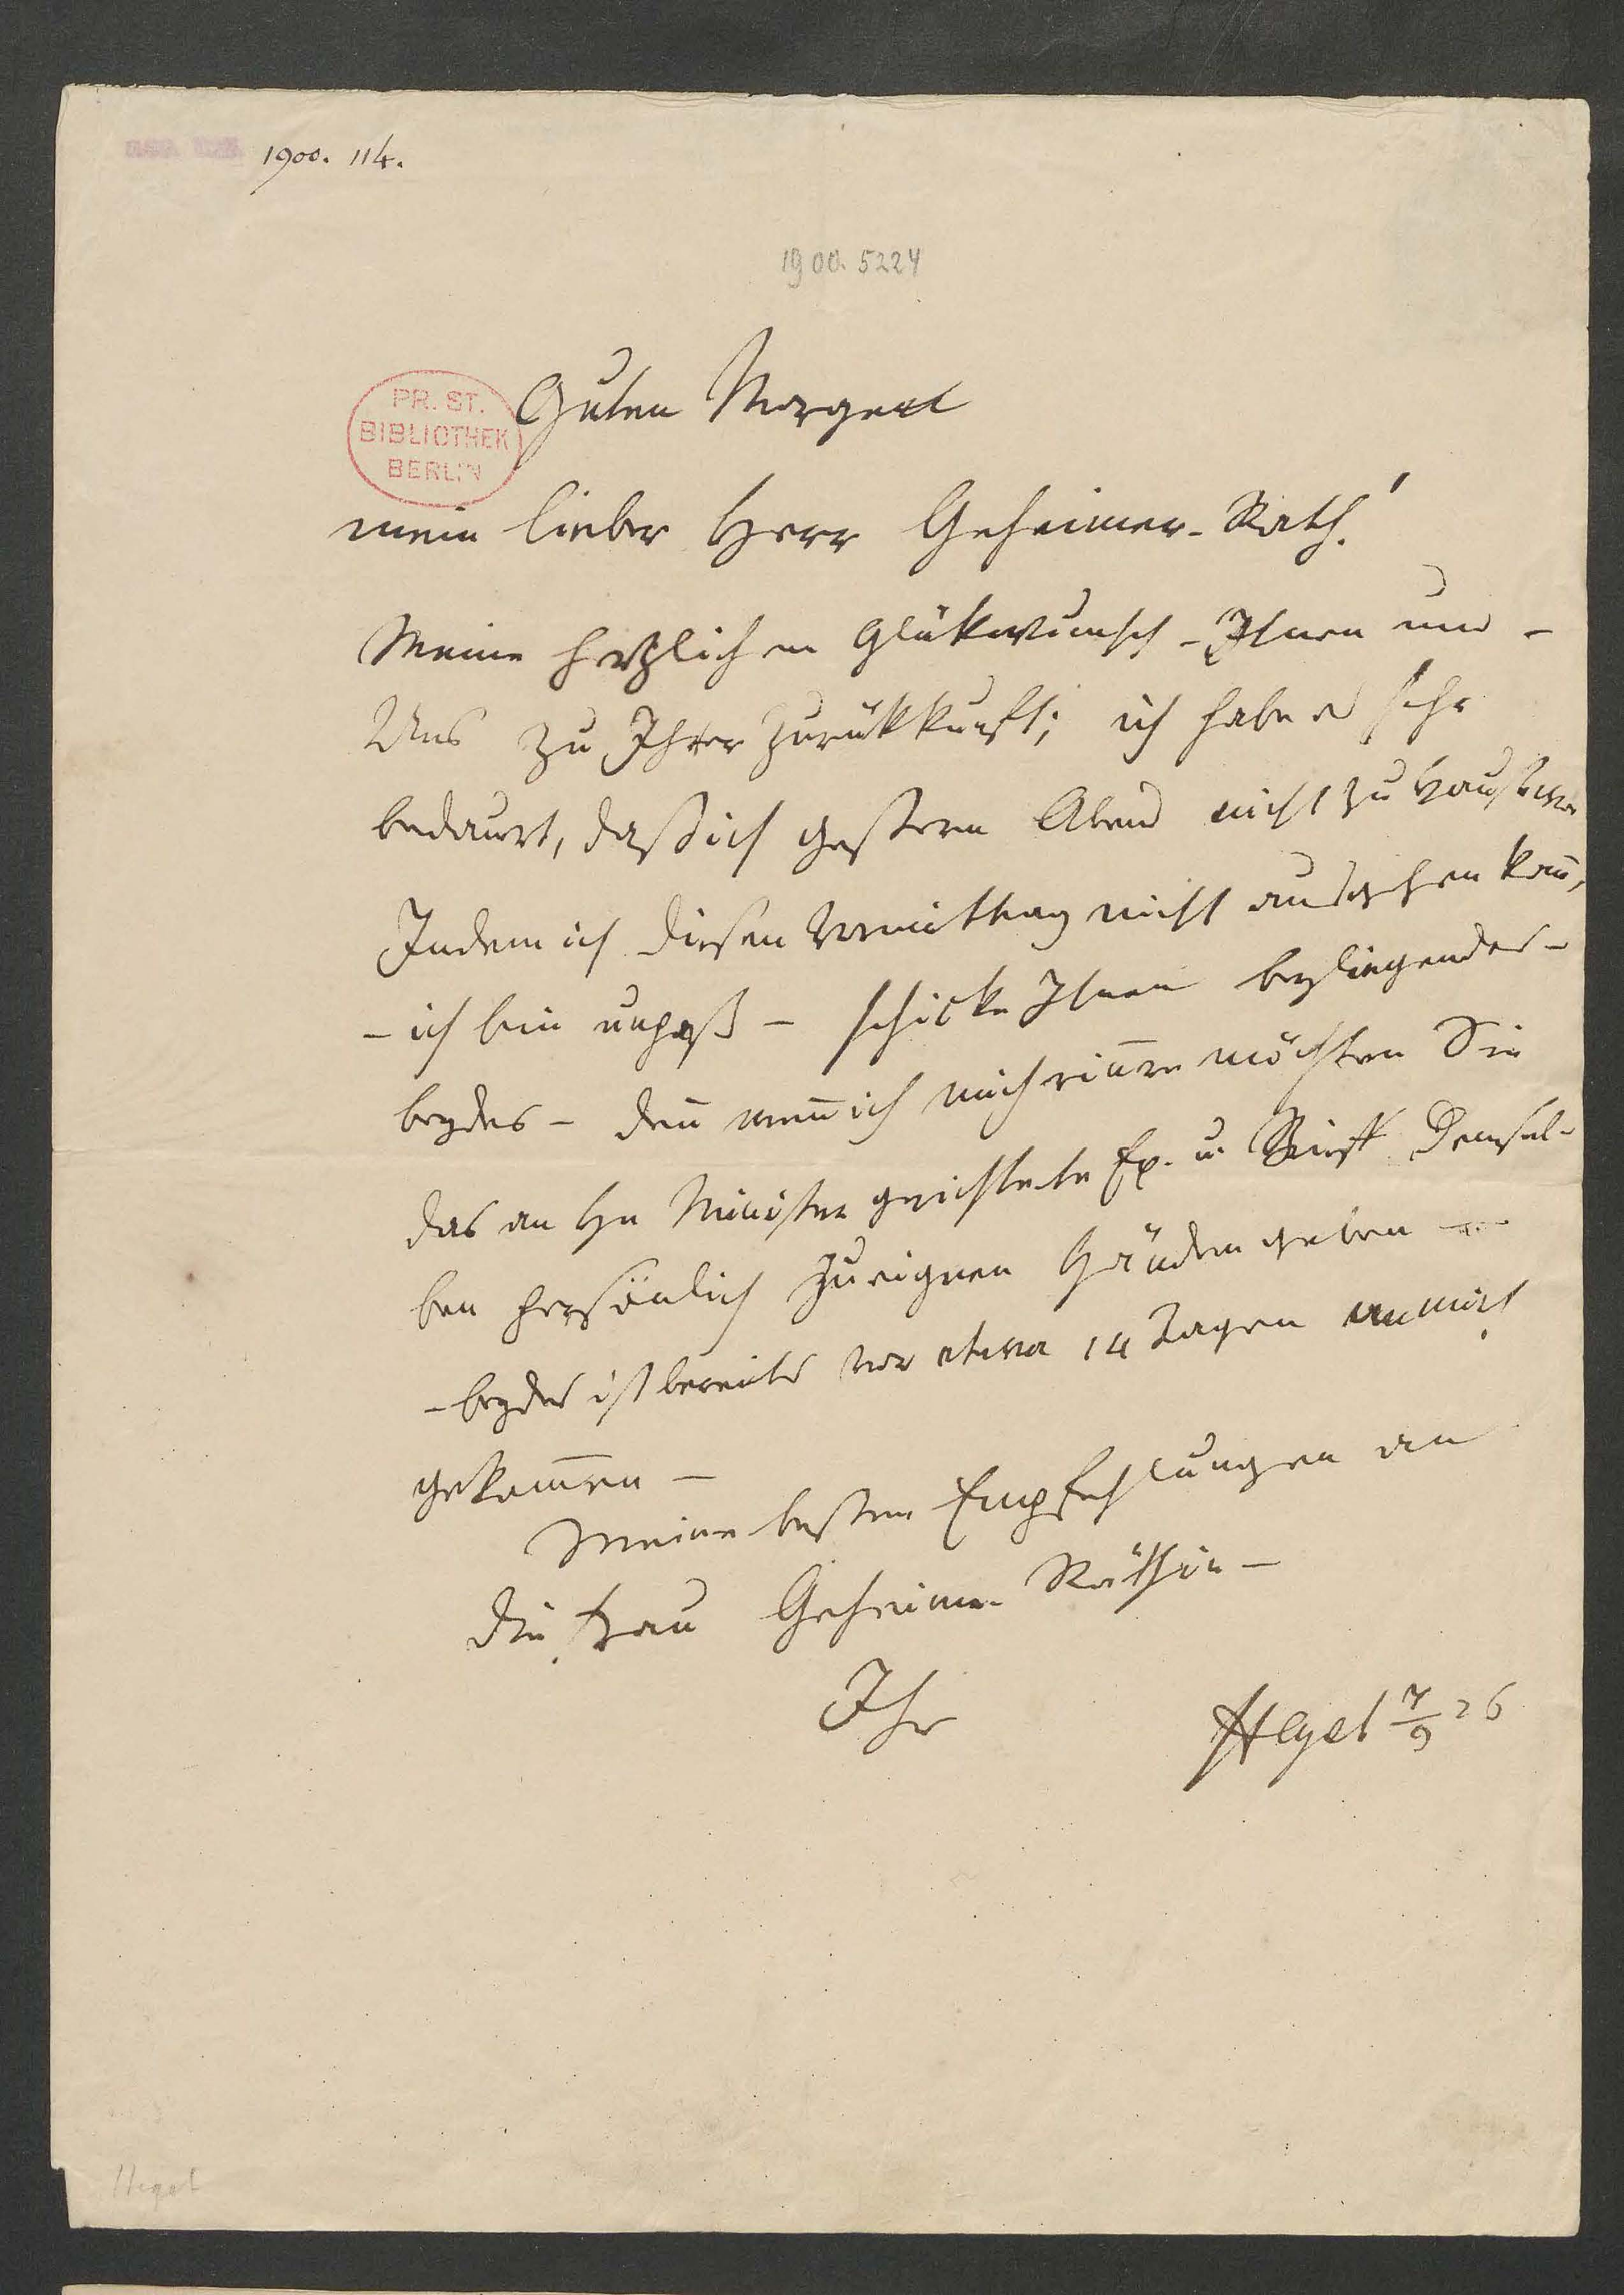 1900. 114.
1900. 5224
PR. ST.
BIBLIOTHEK
BERLIN
Guten Morgen
mein lieber Herr Geheimer-Rath!
Meine herzlichen Glükwunsch - Ihnen und -
Uns zu Ihrer Zurükkunft; ich habe es sehr
bedauert, daß ich gestern Abend nicht zu Hause war
Indem ich diesen Vormittag nicht ausgehen kan̄,
- ich bin unpaß - schicke Ihnen beyliegendes -
beydes - den̄ wen̄ ich mich erin̄re möchten Sie
das an Hn Minister gerichtete Ex. u. Brief Demsel-
ben persönlich zu eignen Händen geben -
- beydes ist bereits vor etwa 14 Tagen an mich
gekom̄en -
Meine besten Empfehlungen an
die Frau Geheime-Räthin -
Ihr
Hegel 7/9 26
Hegel